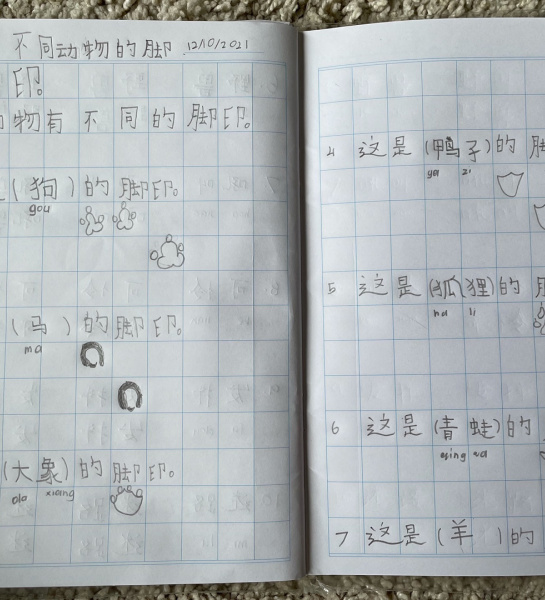 不同动物的脚 12/10/2021
印。
物有不同的脚印。
(狗)的脚印。
gou
(马)的脚印。
ma
(大象)的脚印。
xiang
4 这是(鸭子)的脚
ya zi
5 这是(狐狸)的
li
6 这是(青蛙)的
qing wa
7 这是(羊 )的